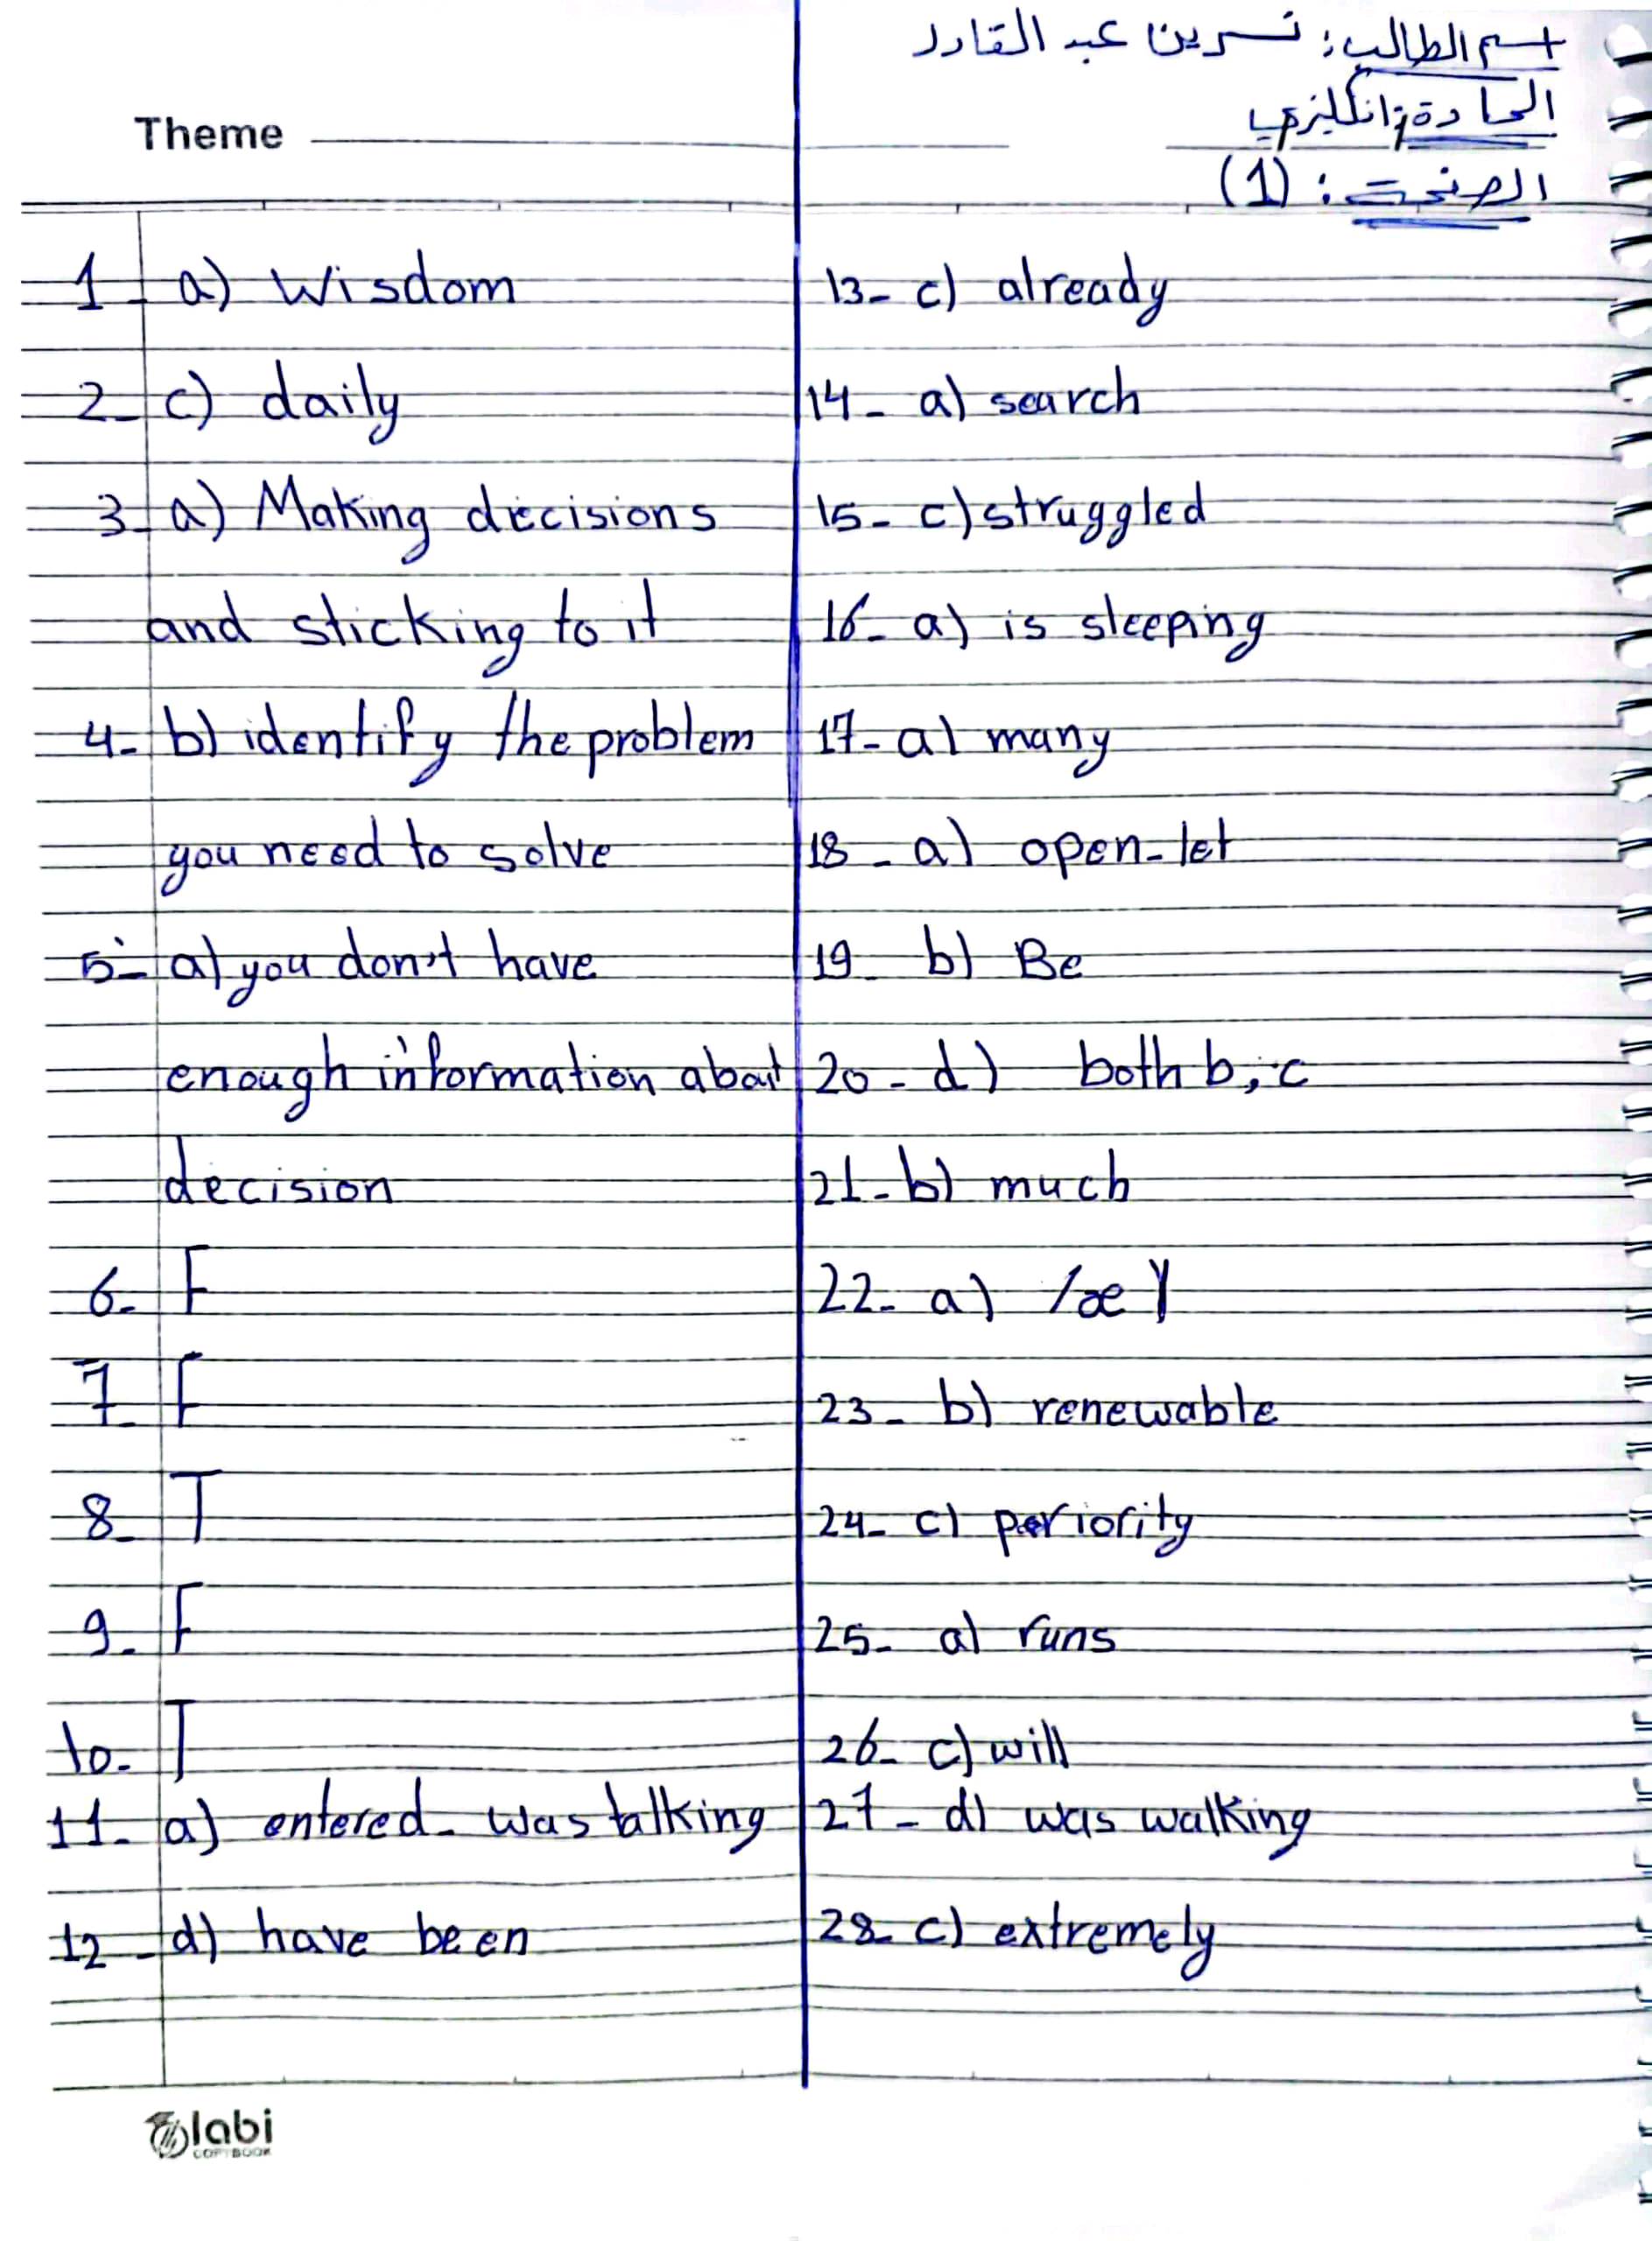 اسم الطالب: نسرين عبد القادر
المادة: انكليزي
الصفحة: (1)
Theme
1 a) Wisdom
2- c) daily
3- a) Making decisions
and sticking to it
4- b) identify the problem
you need to solve
5- a) you don't have
enough information about
decision
6- F
7- F
8- T
9- F
10- T
11- a) entered - was talking
12- d) have been
13- c) already
14- a) search
15- c) struggled
16- a) is sleeping
17- a) many
18- a) open - let
19- b) Be
20- d) both b, c
21- b) much
22- a) /æ/
23- b) renewable
24- c) periority
25- a) runs
26- c) will
27- d) was walking
28- c) extremely
labi
COPYBOOK